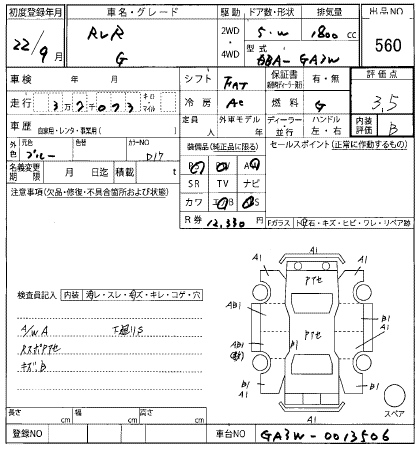 初度登録年月 車名・グレード 駆動 ドア数・形状 排気量 出品NO
22/9月 RVR G 2WD・4WD 5・W 1800cc 560
型式 DBA-GA3W
車検 年 月 シフト FAT 保証書 有・無 評価点
走行 3万2千073 キロ・マイル 冷房 AC 燃料 G 3.5
車歴 自家用・レンタ・事業用( ) 定員 人 外車モデル 年 ディーラー・並行 ハンドル 左・右 内装評価 B
外色 元色 ブルー 色替 カラーNO D17 装備品(純正品に限る) セールスポイント(正常に作動するもの)
名義変更期限 月 日迄 積載 t
注意事項(欠品・修復・不具合箇所および状態)
SR TV ナビ
カワ
R券 12,330円
Fガラス トビ石・キズ・ヒビ・ワレ・リペア跡
検査員記入 内装 汚レ・スレ・キズ・キレ・コゲ・穴
A/W A
キズB
A1
A1
A1
AB1
AB1
B1
A1
B1
B1
A1
スペア
長さ cm 幅 cm 高さ cm
登録NO 車台NO GA3W-0013506